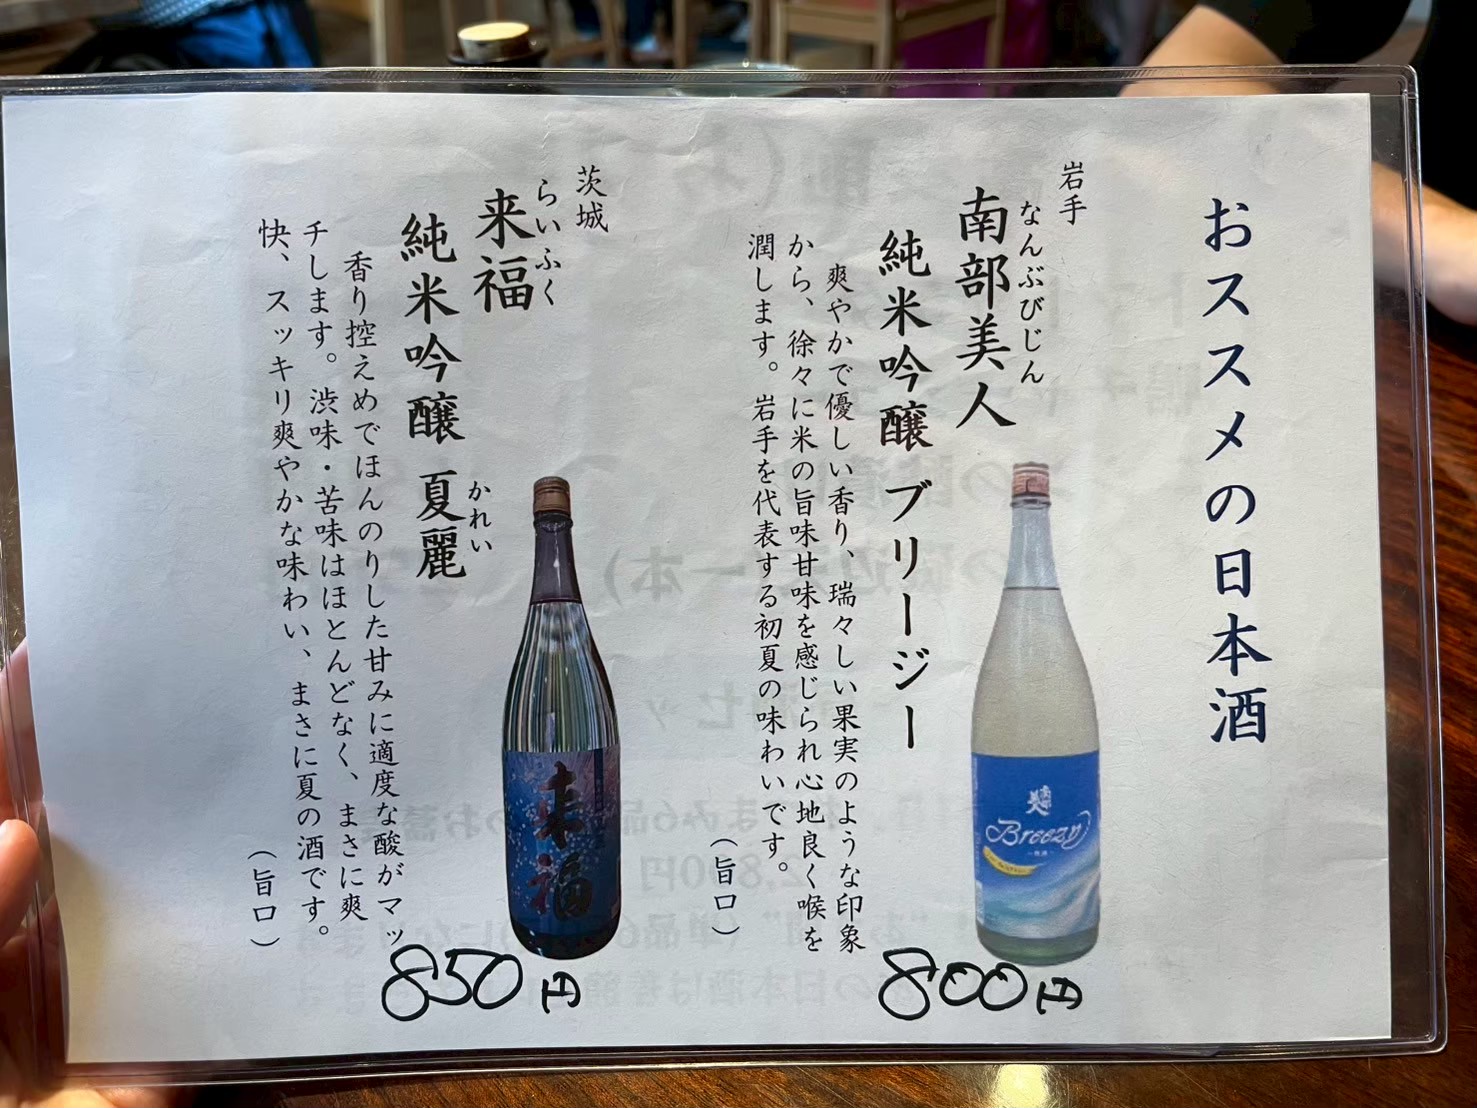 おススメの日本酒
岩手
なんぶびじん
南部美人
純米吟醸 ブリージー
爽やかで優しい香り、瑞々しい果実のような印象
から、徐々に米の旨味甘味を感じられ心地良く喉を
潤します。岩手を代表する初夏の味わいです。
（旨口）
Breezy
800円
茨城
らいふく
来福
かれい
純米吟醸 夏麗
香り控えめでほんのりした甘みに適度な酸がマッ
チします。渋味・苦味はほとんどなく、まさに爽
快、スッキリ爽やかな味わい、まさに夏の酒です。
（旨口）
来福
850円